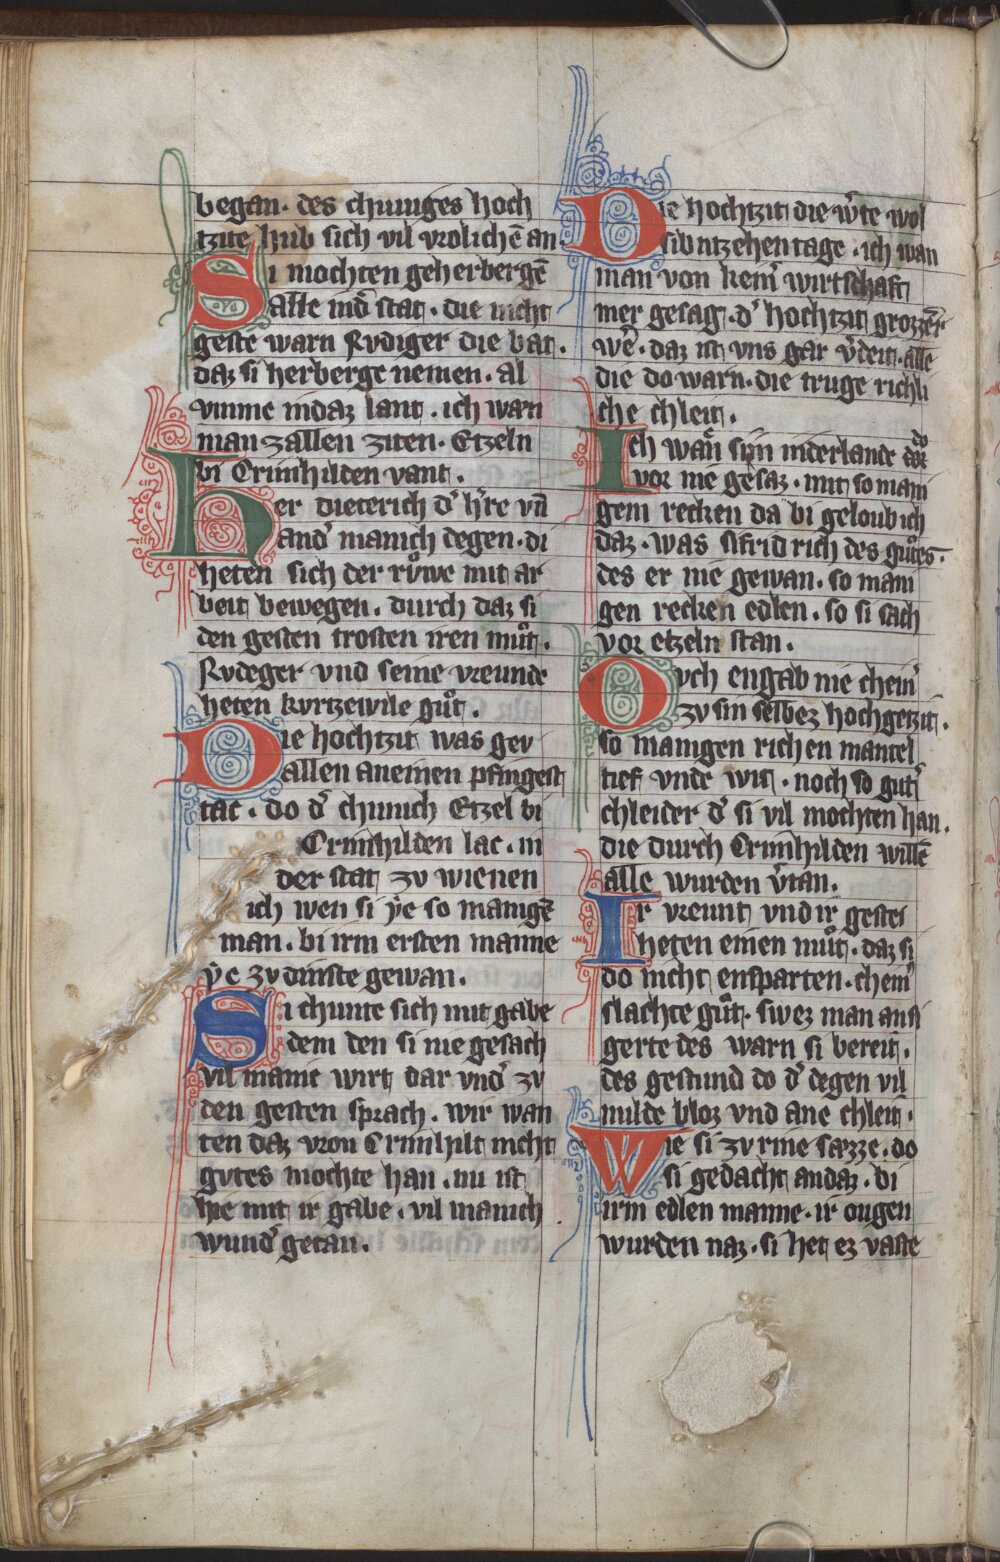 began· des chuniges hoch
tzite hub sich vil vrolichē an·
Si mochten geherbergē
alle in dͤ stat · die nicht
geste warn Rvdiger die bat ·
daz si herberge nemen · al
vmme in daz lant · ich wan
man zallen ziten · Etzeln
bi Crimhilden vant ·
Her dieterich dˀ hˀre vn̄
andˀ manich degen · di
heten sich der rv̊we mit ar
beit bewegen · durch daz si
den gesten trosten iren mů̊t ·
Rvdeger vnd seine vreunde
heten kvrtzewile gůt ·
Die hochtzit was gev
allen an einen pfingest
tac · do dˀ chunich Etzel bi
Crimhilden lac · in
der stat zv wienen
ich wen si ẏe so manigē
man · bi irm ersten manne
ẏe zv dinste gewan ·
Si chunte sich mit gabe
dem den si nie gesach
vil manic wirt dar vndˀ zv
den gesten sprach · wir wan
ten daz vrou Crimhilt nicht
gvtes mochte han · nu ist
hie mit ir gabe · vil manich
wundˀ getan ·
Die hochtzit die wˀte wol
sibntzehen tage · ich wan
man von keinˀ wirtschaft
mer gesag · dˀ hochtzit grozzēr
wē · daz ist vns gar vˀdeit · alle
die do warn · die truge richli
che chleit ·
Ich wan sin in derlande do
vor nie gesaz · mit so mani
gem recken da bi geloub ich
daz · was sifrid rich des gůtes ·
des er nie gewan · so mani
gen recken edlen · so si sach
vor etzeln stan ·
Ovch engab nie cheinˀ
zv sin selbez hochgetzit ·
so manigen richen mantel
tief vnde wit · noch so gutˀ
chleider dˀ si vil mochten han ·
die durch Crimhilden willē
alle wurden vˀtan ·
Ir vreunt vnd ir gestei
heten einen můt · daz si
do nicht ensparten · cheinˀ
slachte gůt · swez man an si
gerte des warn si bereit ·
des gestund do dˀ degen vil
milde bloz vnd ane chleit ·
Wie si zv rine sazze · do
si gedacht an daz · bi
irm edlen manne · ir ougen
wurden naz · si het ez vaste